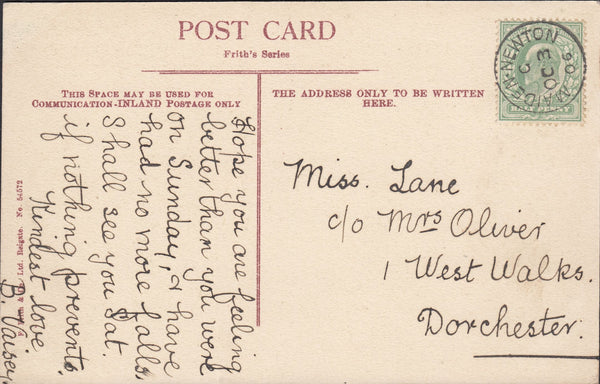 POST CARD
Frith's Series
THIS SPACE MAY BE USED FOR
COMMUNICATION-INLAND POSTAGE ONLY
THE ADDRESS ONLY TO BE WRITTEN
HERE.
Hope you are feeling
better than you were
on Sunday, & have
had no more falls,
Shall see you Sat.
if nothing prevents.
Kindest love
B. Vaisey.
Miss. Lane
c/o Mrs Oliver
1 West Walks.
Dorchester.
MAIDEN-NEWTON
OC 3
06
HALFPENNY
& Co., Ltd., Reigate. No. 54572